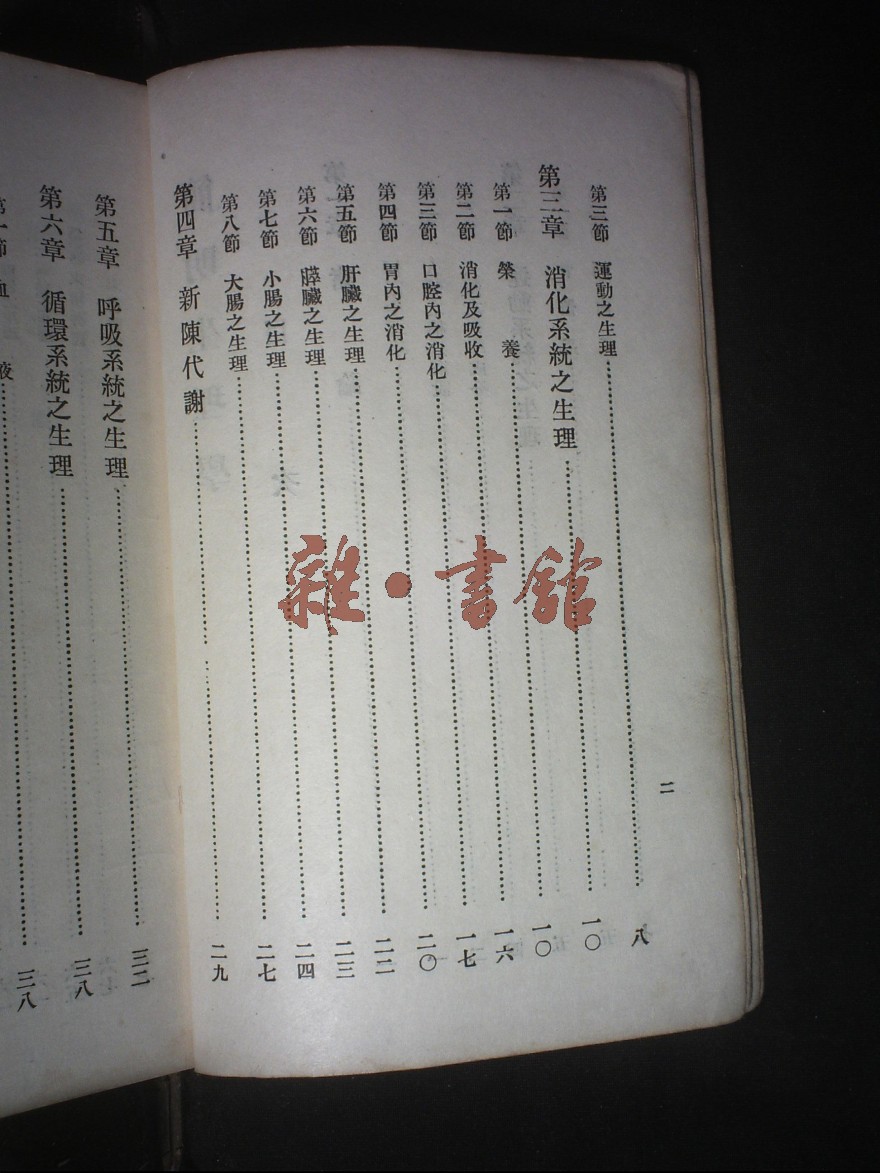 二
第三節 運動之生理……八
第三章 消化系統之生理……一〇
第一節 榮養……一〇
第二節 消化及吸收……一六
第三節 口腔內之消化……一七
第四節 胃內之消化……二〇
第五節 肝臟之生理……二二
第六節 膵臟之生理……二三
第七節 小腸之生理……二四
第八節 大腸之生理……二七
第四章 新陳代謝……二九
第五章 呼吸系統之生理……三二
第六章 循環系統之生理……三八
第一節 血液……三八
雜·書館